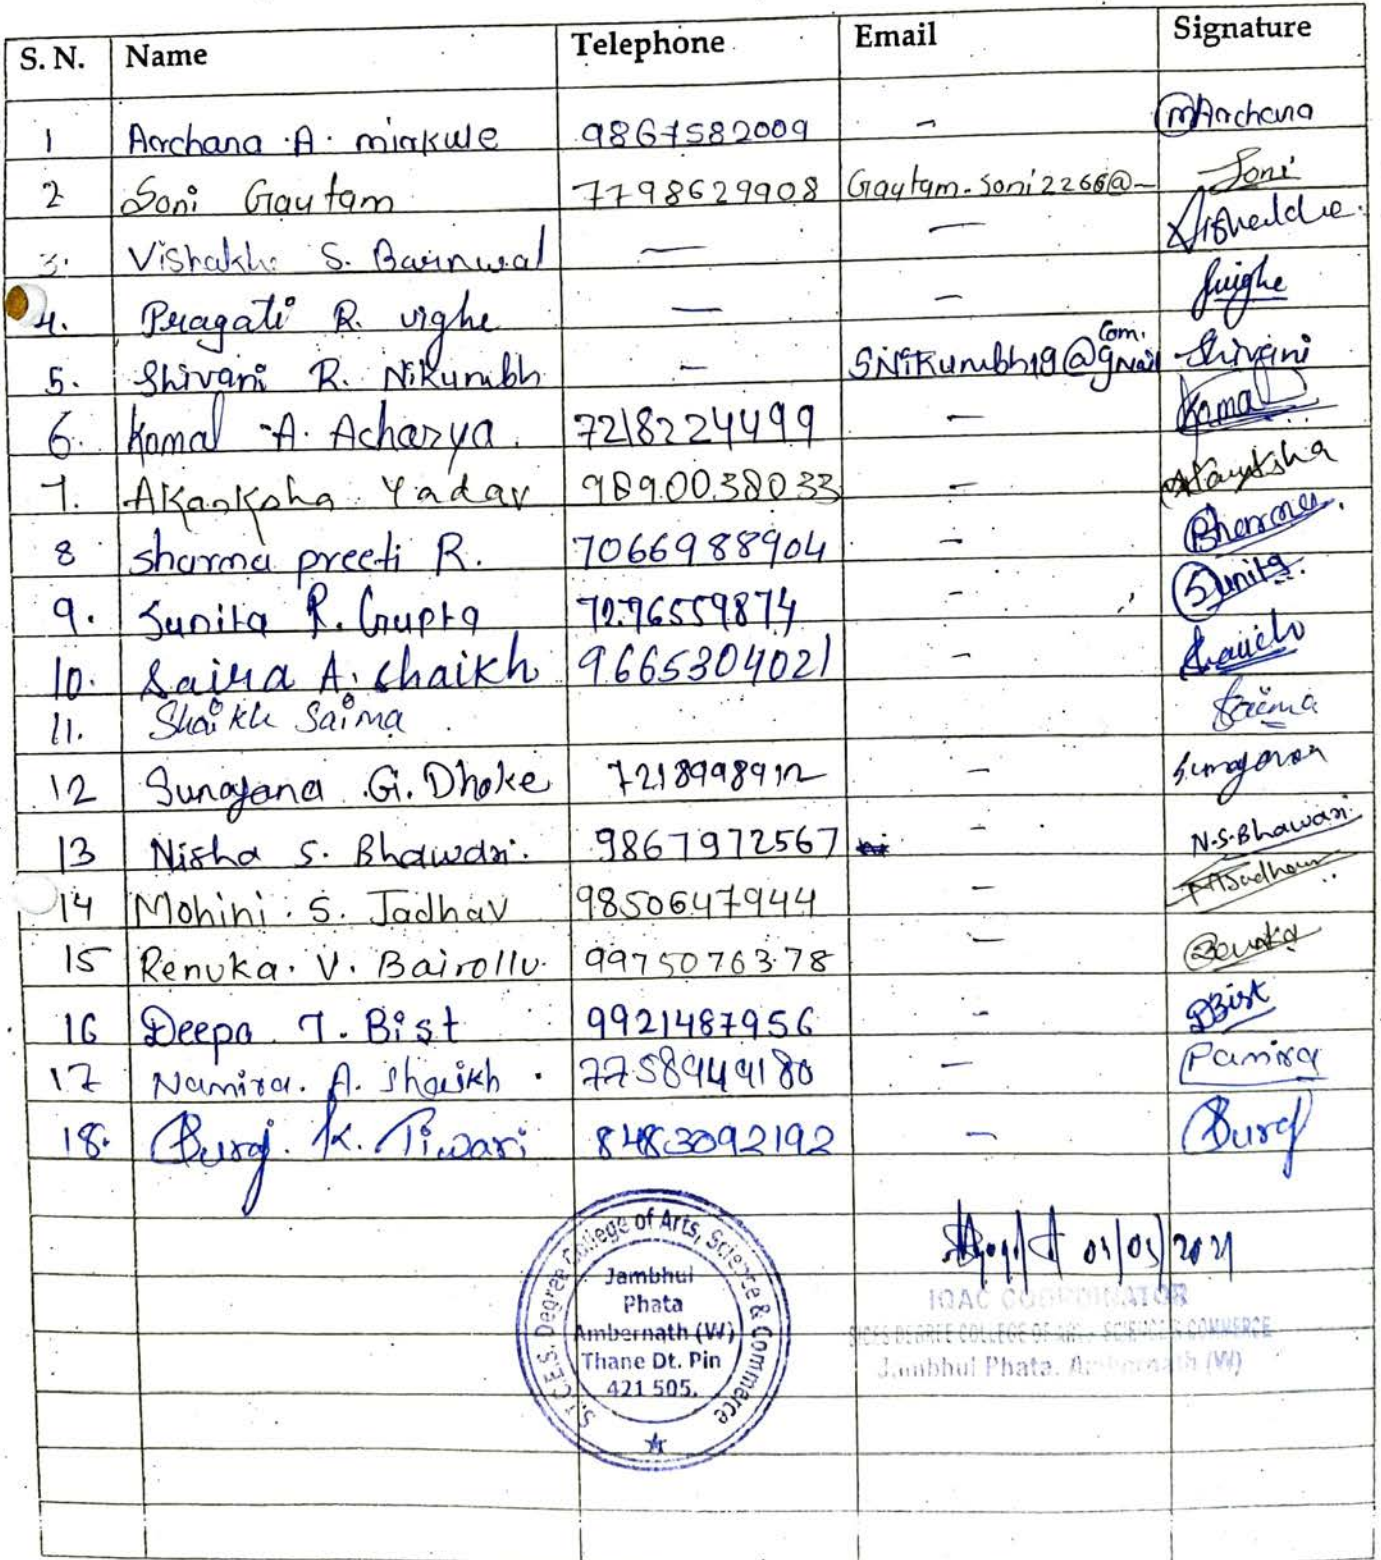 S. N. Name Telephone Email Signature
1 Archana A. mirkule 9867582009 - Archana
2 Soni Gautam 7798629908 Gautam.soni2266@- Soni
3. Vishakha S. Barnwal — —
4. Pragati R. vighe — — Vighe
5. Shivani R. Nikumbh - SNikumbh19@gmail com. Shivani
6. Kamal A. Acharya 7218224499 - Kamal
7. Akanksha Yadav 9890038033 - Akanksha
8 sharma preeti R. 7066988904 - Sharma
9. Sunita R. Gupta 7276559874 - Sunita
10. Saira A. shaikh 9665304021 -
11. Shaikh Saima Saima
12 Sunayana G. Dhoke 7218998912 - Sunayana
13 Nisha S. Bhawari. 9867972567 - N.S.Bhawari.
14 Mohini S. Jadhav 9850647944 - Jadhav
15 Renuka. V. Bairollu. 9975076378 - Renuka
16 Deepa T. Bist 9921487956 - DBist
17 Namira. A. Shaikh. 7758949180 - Namira
18. Suraj. K. Tiwari 8483092192 - Suraj
S.I.C.E.S. Degree College of Arts, Science & Commerce
Jambhul
Phata
Ambernath (W)
Thane Dt. Pin
421 505.
2021
IQAC COORDINATOR
SICES DEGREE COLLEGE OF ARTS, SCIENCE & COMMERCE
Jambhul Phata. Ambernath (W)